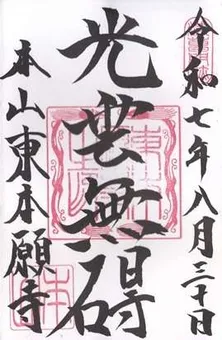 令和七年八月三十日
光雲無碍
本山東本願寺